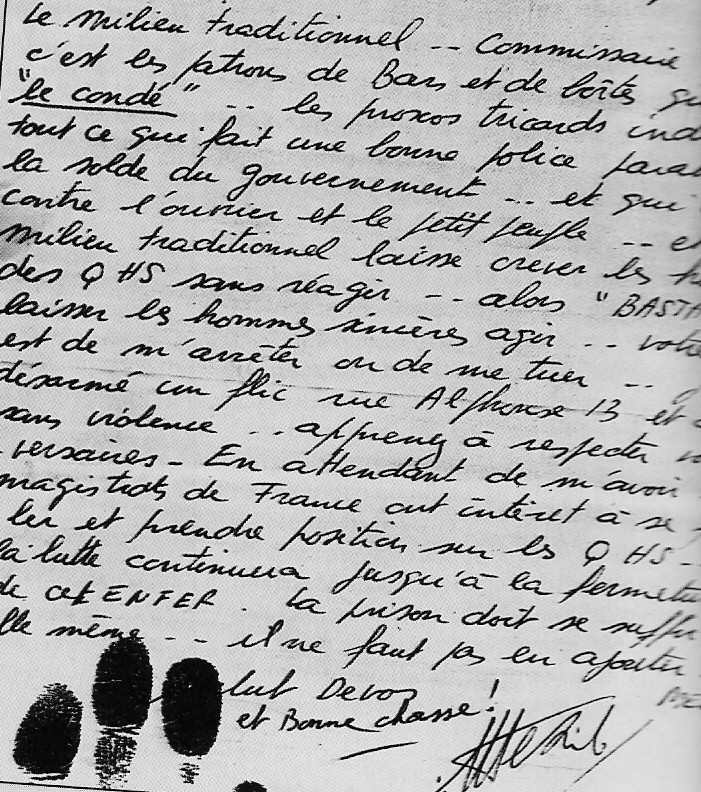 Le milieu traditionnel -- Commissaire
c'est les patrons de Bars et de boîtes qu
"le condé" -- les proxos tricards ind
tout ce qui fait une bonne police para
la solde du gouvernement -- et qui
contre l'ouvrier et le petit peuple -- e
milieu traditionnel laisse crever les h
des QHS sans réagir -- alors "BASTA
laisser les hommes sincères agir -- votre
est de m'arrêter ou de me tuer --
désarmé un flic rue Alphonse 13 et
sans violence -- appreney à respecter v
versaires - En attendant de m'avoir
magistrats de France ont intéret à se
ler et prendre position sur les QHS -
la lutte continuera jusqu'à la fermetu
de cet ENFER. La prison doit se suffir
lle même -- il ne faut pas en ajouter
lut Devos
et Bonne chasse!